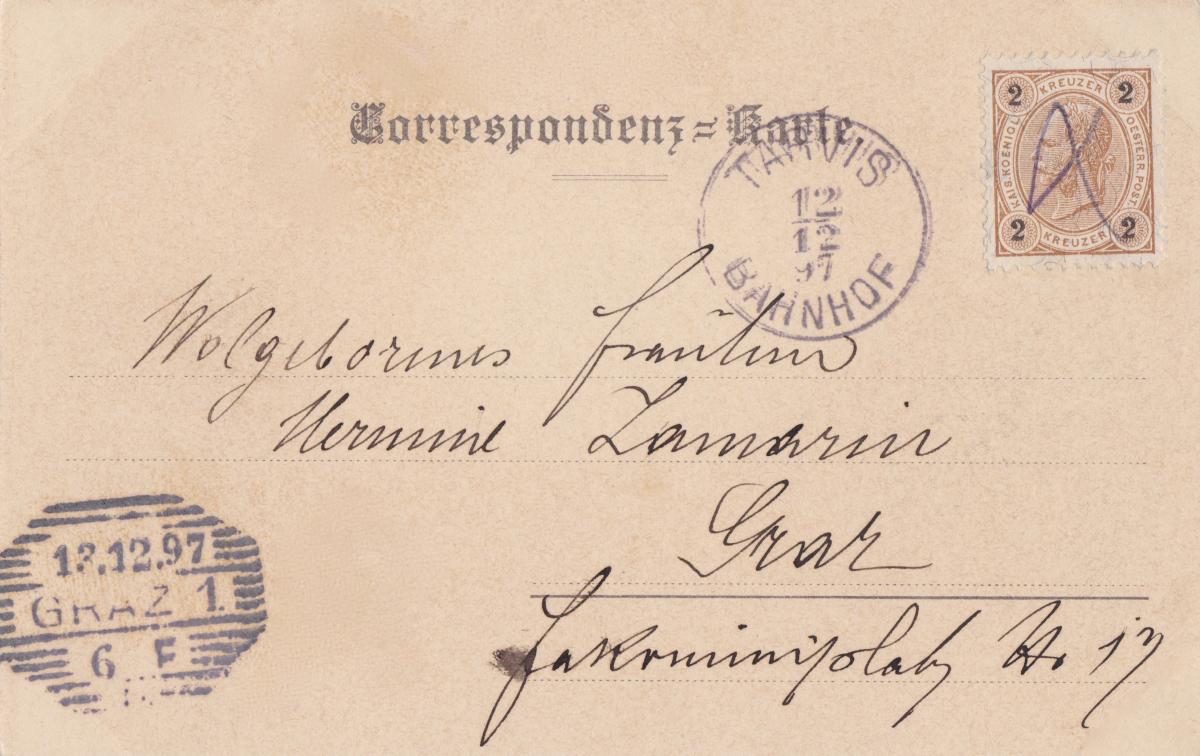 Correspondenz-Karte
2 KREUZER 2
KAIS. KOENIGL. OESTERR. POST.
2 KREUZER 2
TARVIS
12
12
97
BAHNHOF
Wolgeborenes Fräulein
Hermine Zamarin
Graz
Jakominiplatz No 17
13.12.97
GRAZ 1.
6 F